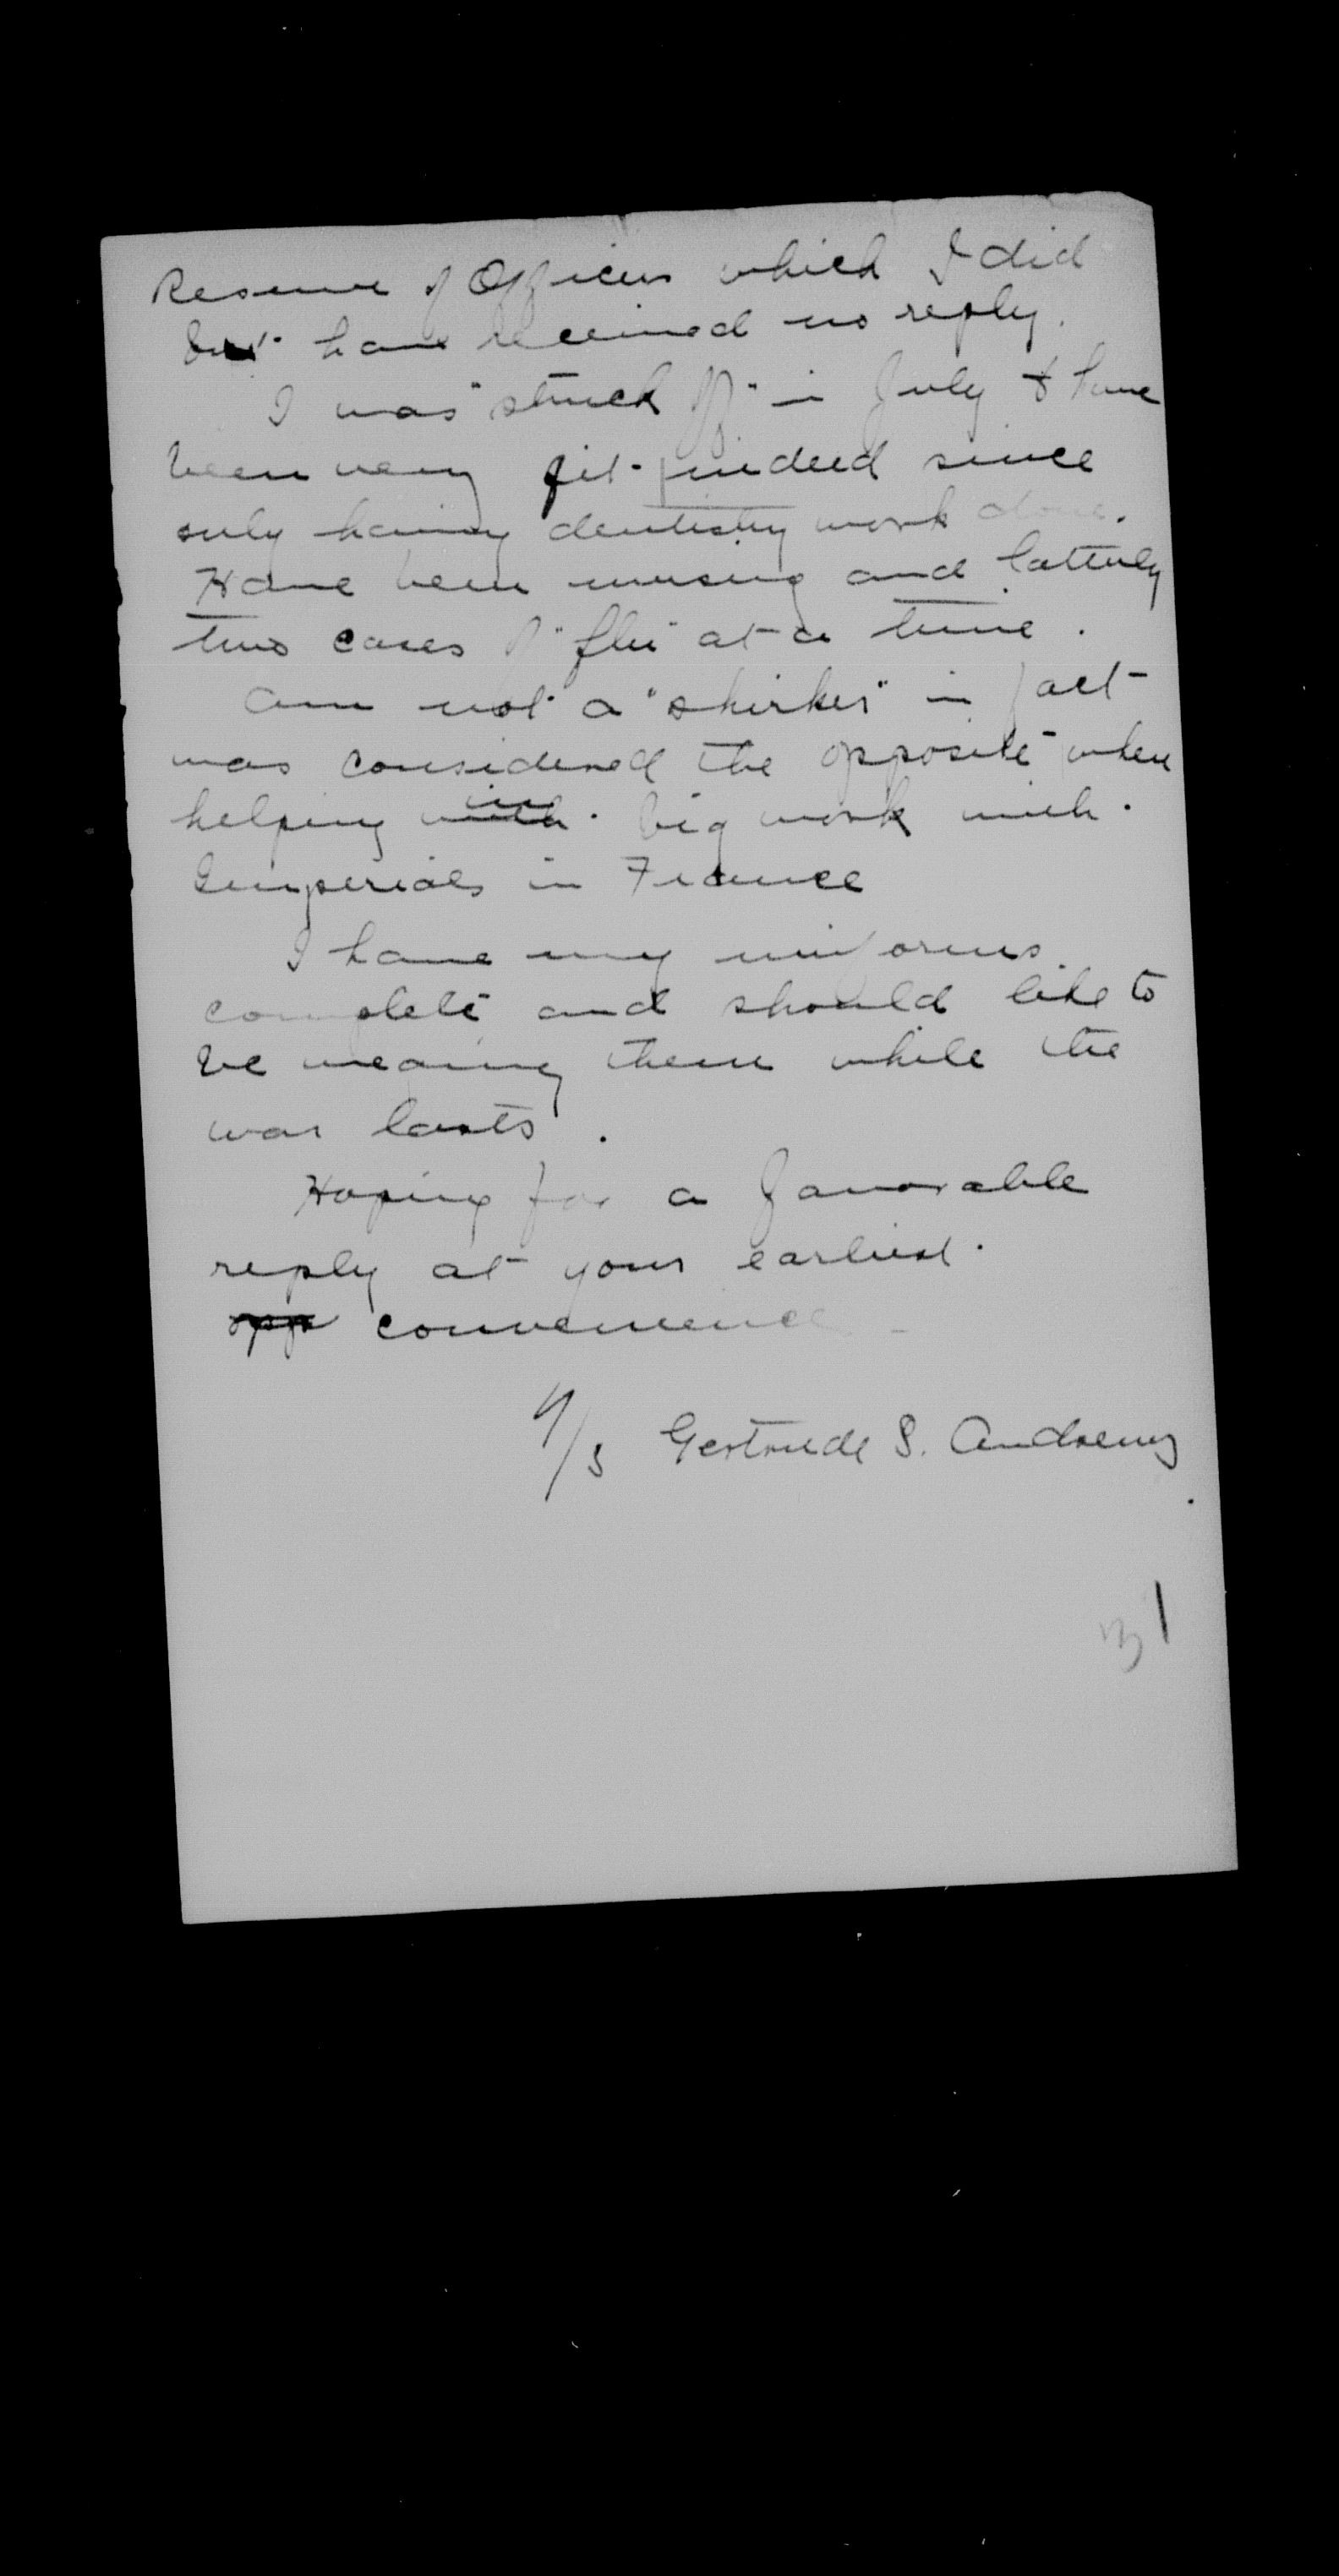 Reserve of Officers which I did
but have received no reply.
I was "struck off" in July & have
been very fit indeed since
only having dentistry work done.
Have been nursing and latterly
two cases of "flu" at a time.
Am not a "shirker" in fact
was considered the opposite when
helping with in big work with
Imperials in France
I have my uniforms
complete and should like to
be wearing them while the
war lasts.
Hoping for a favorable
reply at your earliest
opp convenience
N/S Gertrude S. Andrews
31